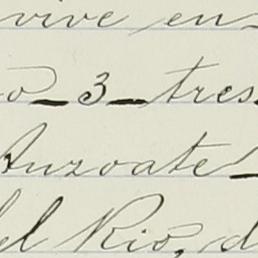 vive en
o_3_tres
Anzoate_
del Rio, d